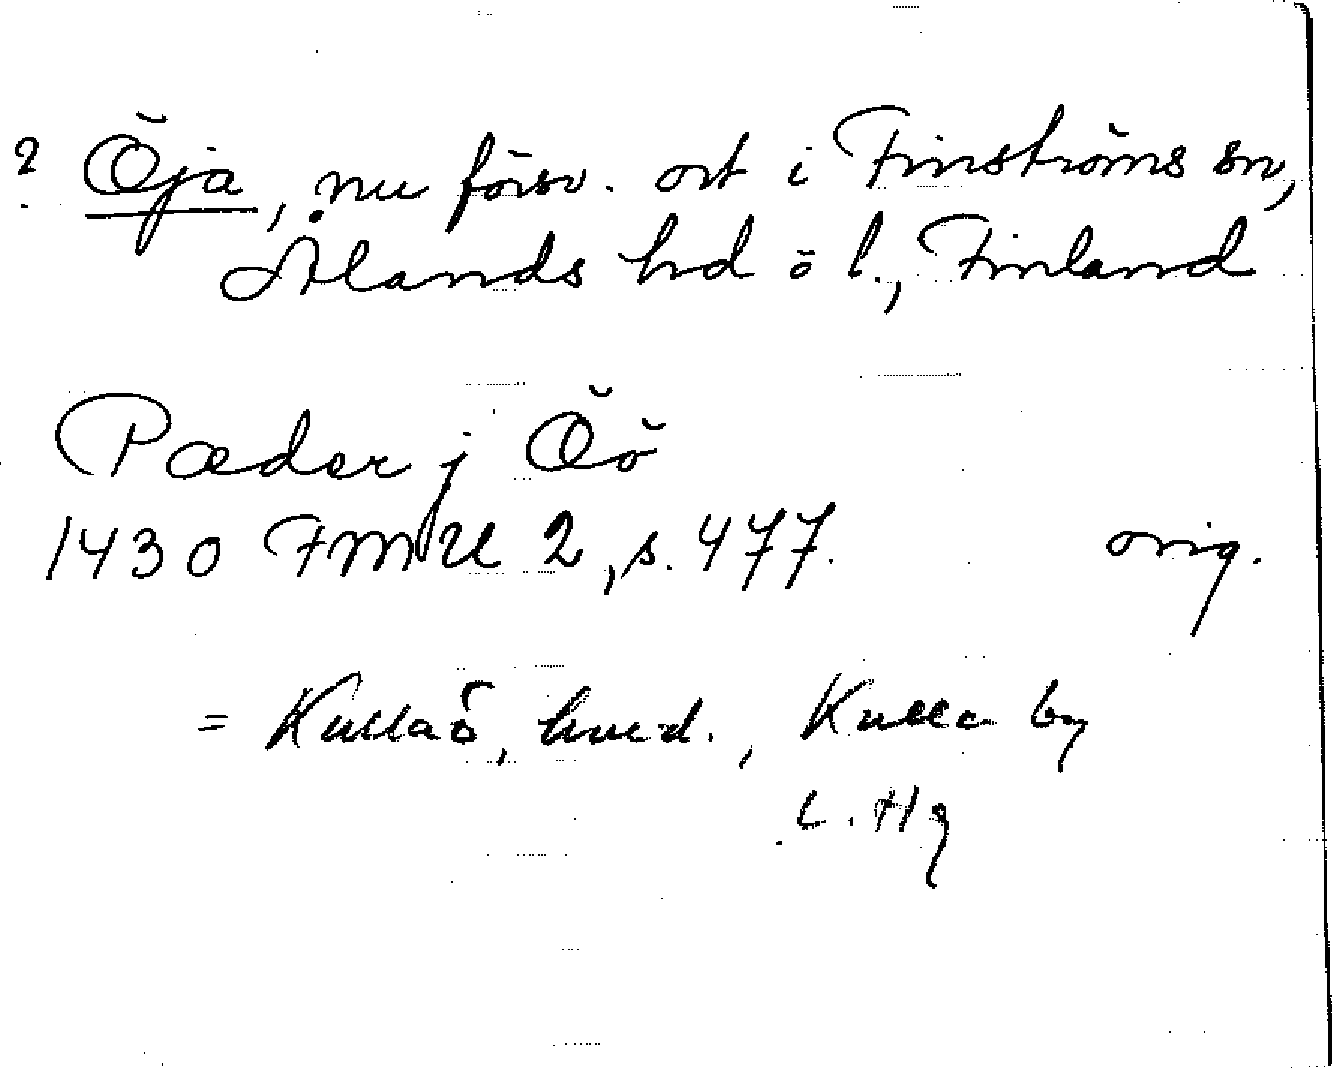 ? Öja, nu försv. ort i Finströms sn,
Ålands hd ö l., Finland
Pæder j Öö
1430 FMU 2, s. 477. orig.
= Kullaö, hmd., Kulla by
L. Hg